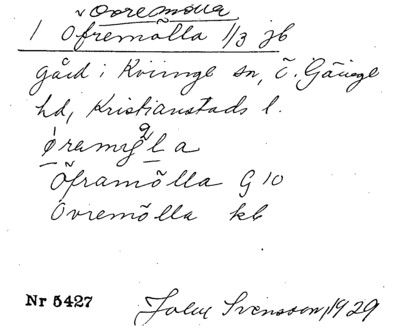 v Övremölla
1 Ofremölla 1/3 jb
gård i Kviinge sn, Ö. Göinge
hd, Kristianstads l.
øramyl2la
Öframölla G 10
Övremölla kb
Nr 5427 John Svensson, 1929